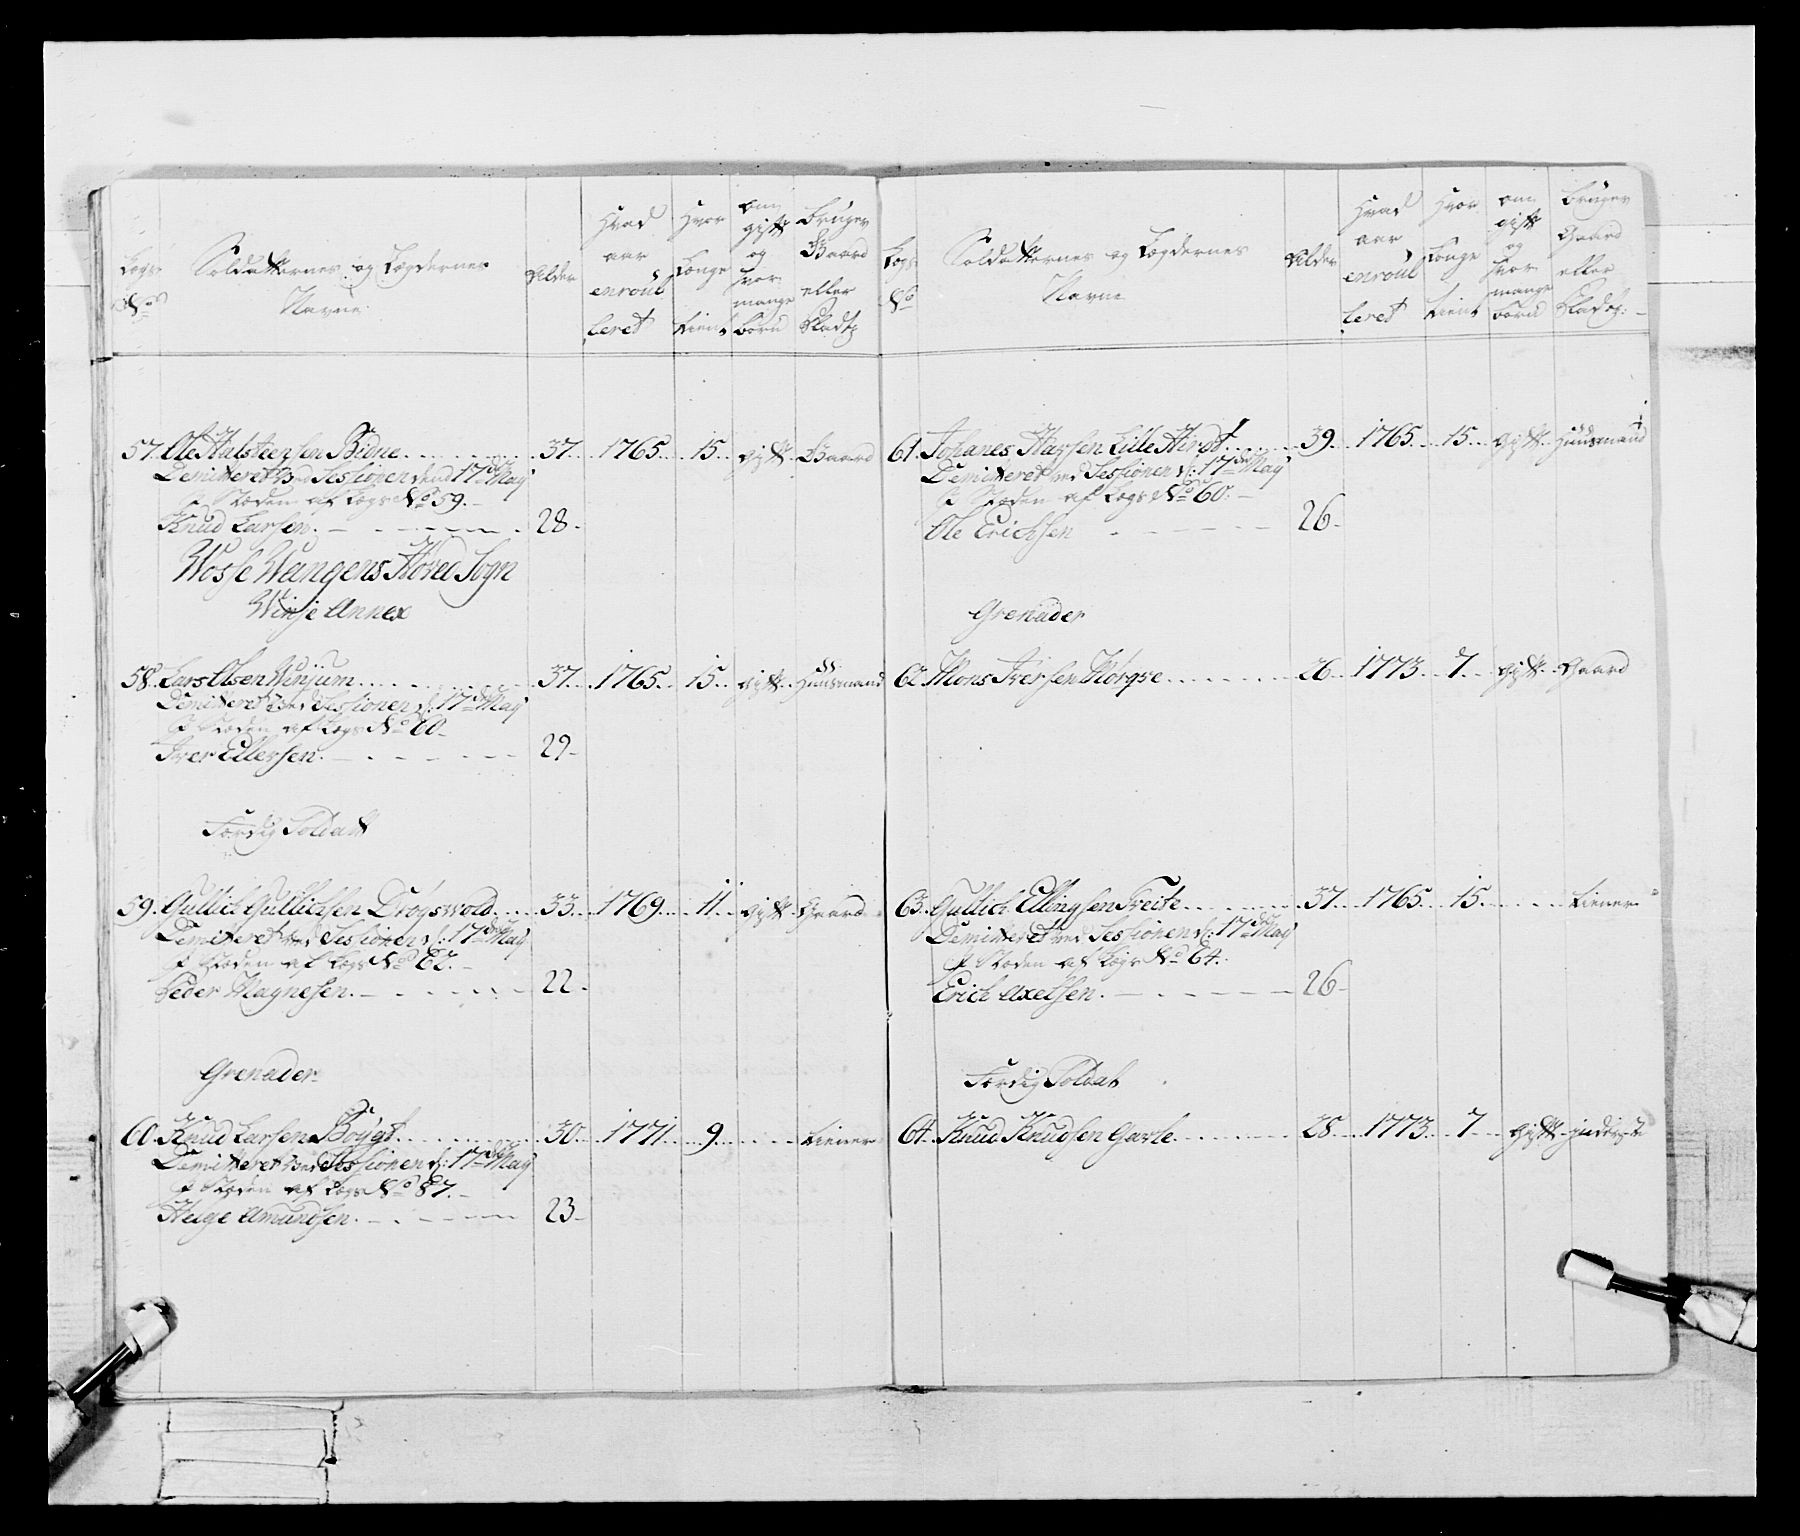 Legs No
Soldatternes og Lægdernes Navne
Alder
Hvad aar enroulleret
Hvor Længe tient
om gift og hvor mange børn
bruger Gaard eller Pladtz
57. Ole Halsteensen Bidne 37 1765 15 gift Gaard
Demitteret ved Sessionen dend 17de May
I Stæden af Legs No 59.
Knud Larsen 28
Wosse Wangens Hoved Sogn
Winje Annex
58. Lars Olsen Winjum 37 1765 15 gift Huusmand
Demitteret ved Sessionen d: 17de May
I Stæden af Legs No 60
Iver Ellersen 29
Færdig Soldatt
59. Gullich Gullichsen Drøgswold 33 1769 11 gift Gaard
Demitteret ved Sessionen d: 17de May
I Stæden af Legs No 62.
Peder Magnesen 22
Grenader
60. Knud Larsen Bøygt 30 1771 9 tiener
Demitteret ved Sessionen d: 17de May
I Stæden af Legs No 87.
Helge Amundsen 23
Legs No
Soldatternes og Lægdernes Navne
Alder
Hvad aar enroulleret
Hvor Længe tient
om gift og hvor mange børn
bruger Gaard eller Pladtz:
61. Johanes Lille 39 1765 15 gift Huusmand
Demitteret ved Sessionen d: 17de May
I Stæden af Legs No 60.
Ole Erichsen 26
Grenader
62. Mons Iversen Mørqve 26 1773 7 gift Gaard
63. Gullich Ellingsen Treite 37 1765 15 tiener
Demitteret ved Sessionen d: 17de May
I Stæden af Legs No 64.
Erich Axelsen 26
Færdig Soldat
64. Knud Knudsen Gavle 28 1773 7 gift inderste